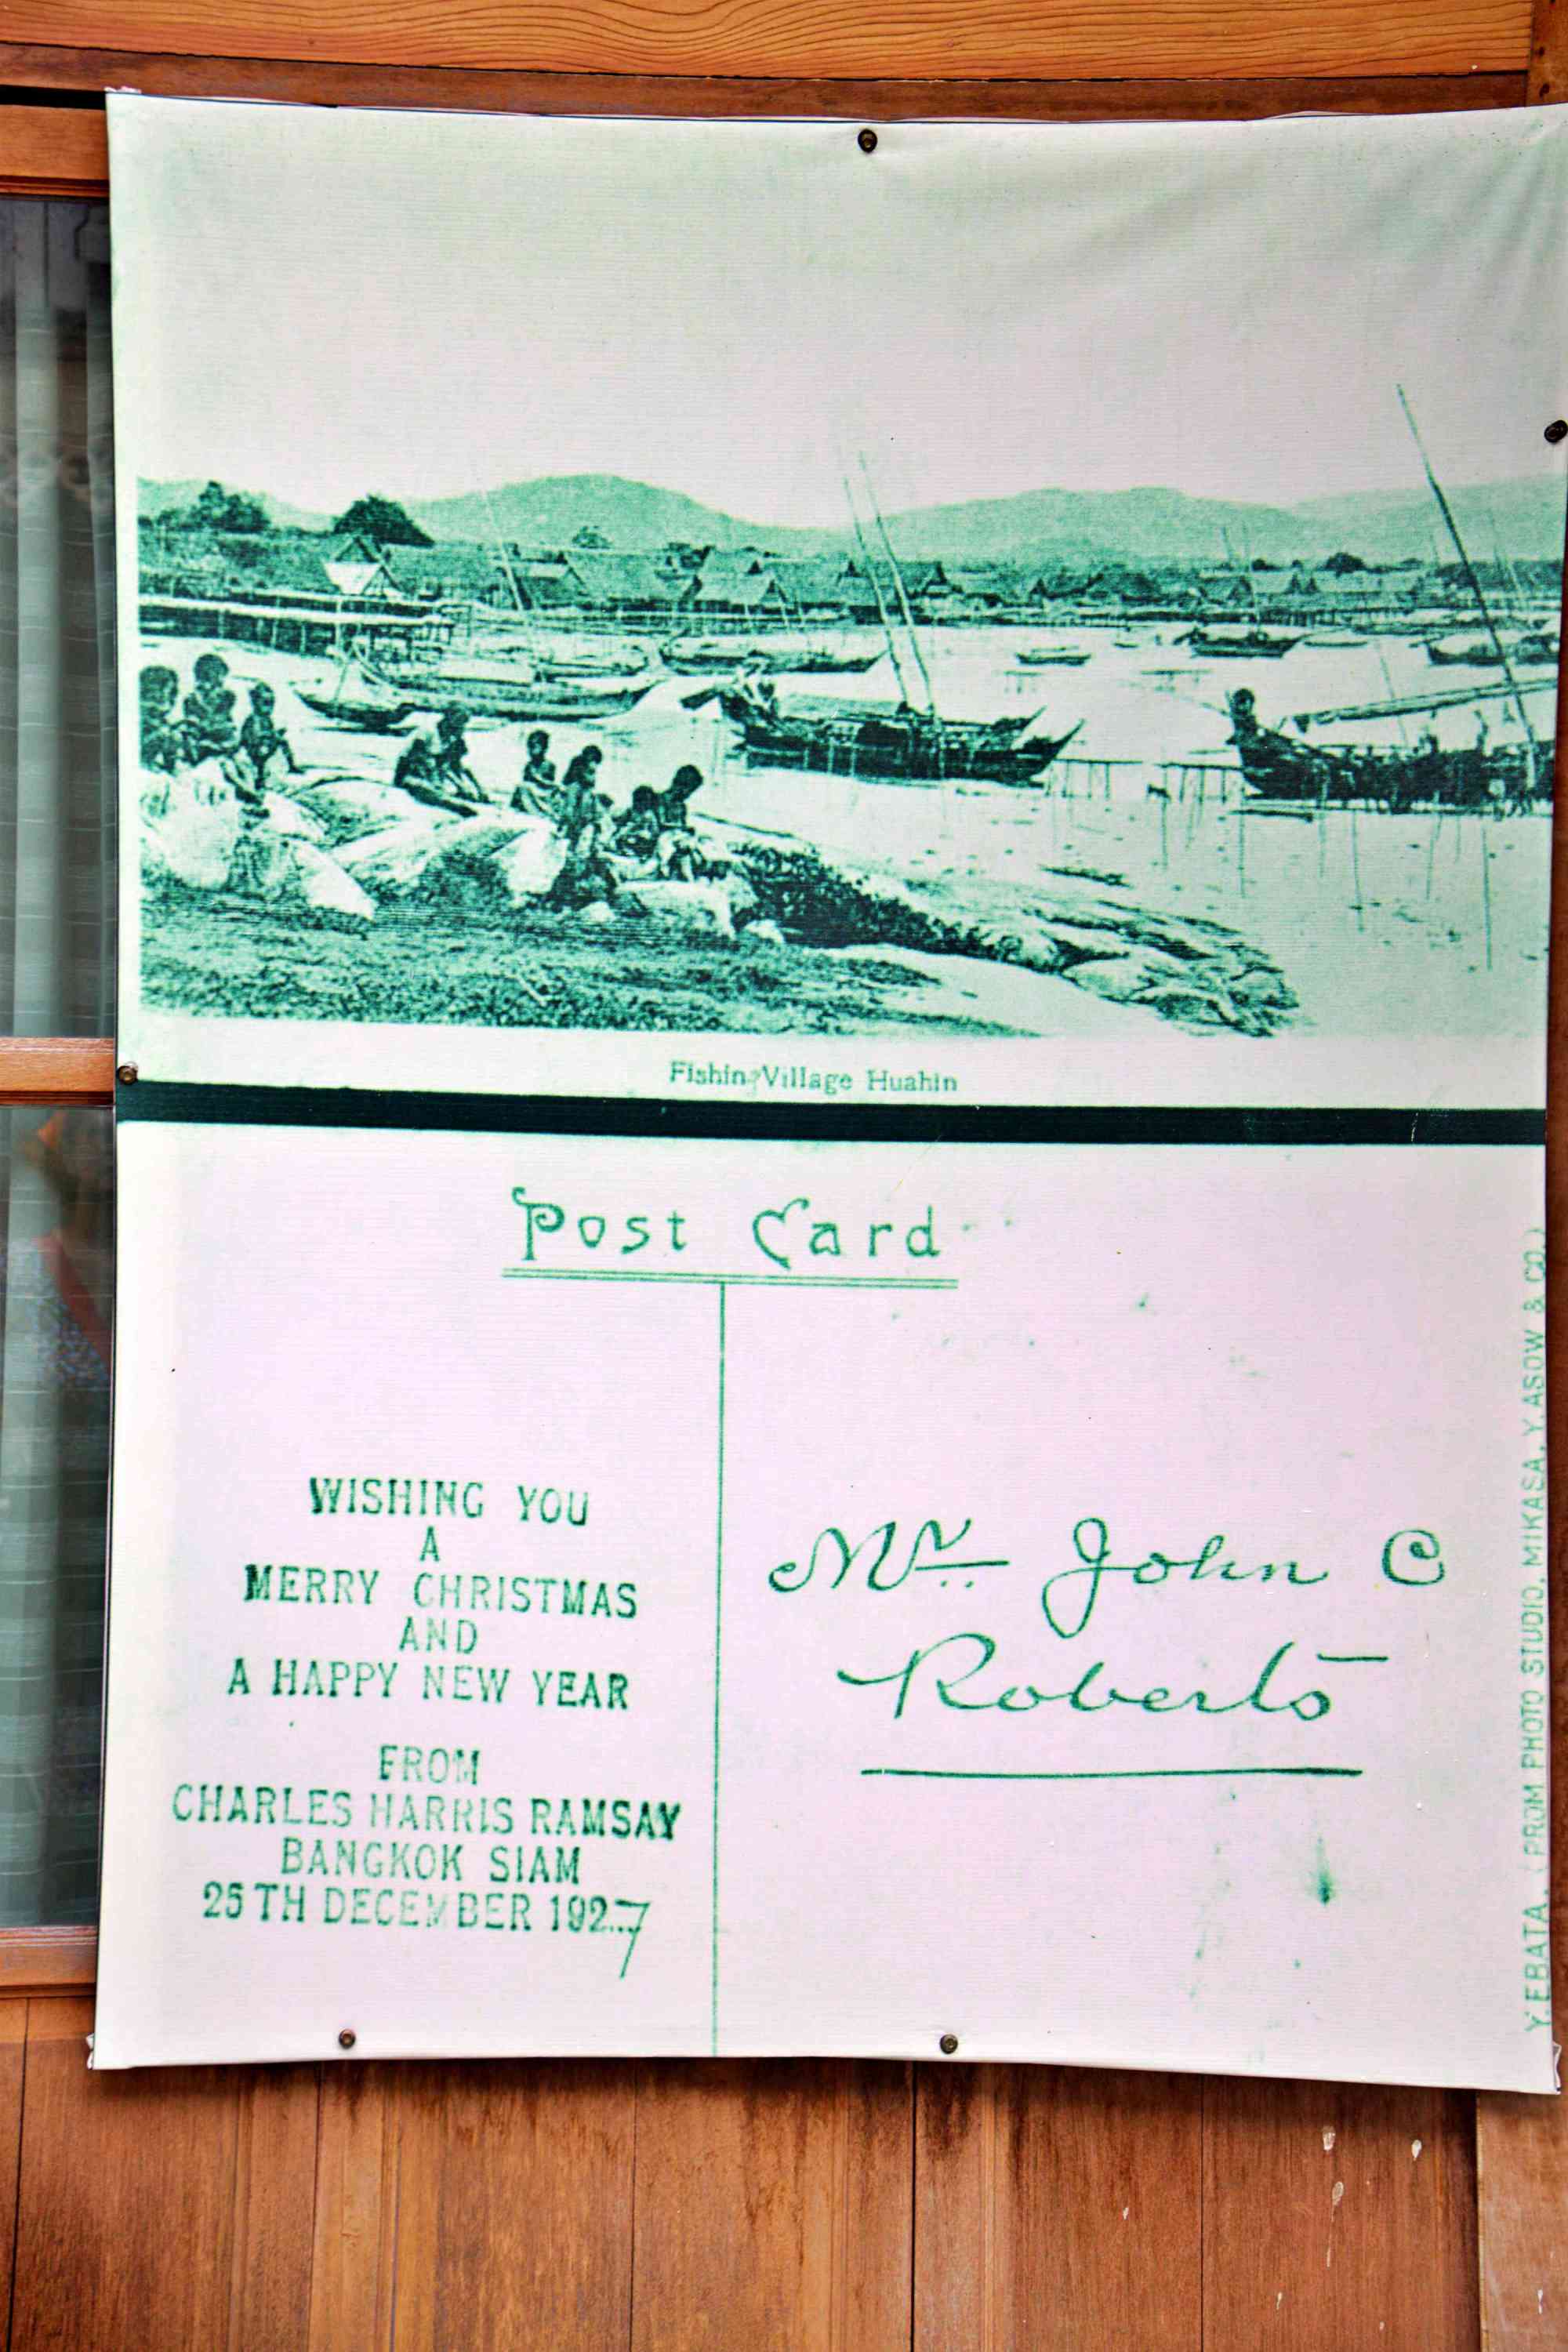 Fishing Village Huahin
Post Card
WISHING YOU
A
MERRY CHRISTMAS
AND
A HAPPY NEW YEAR
FROM
CHARLES HARRIS RAMSAY
BANGKOK SIAM
25TH DECEMBER 1927
Mr. John C
Roberts
Y. EBATA. (PROM PHOTO STUDIO. MIKASA. Y. ASOW & CO.)